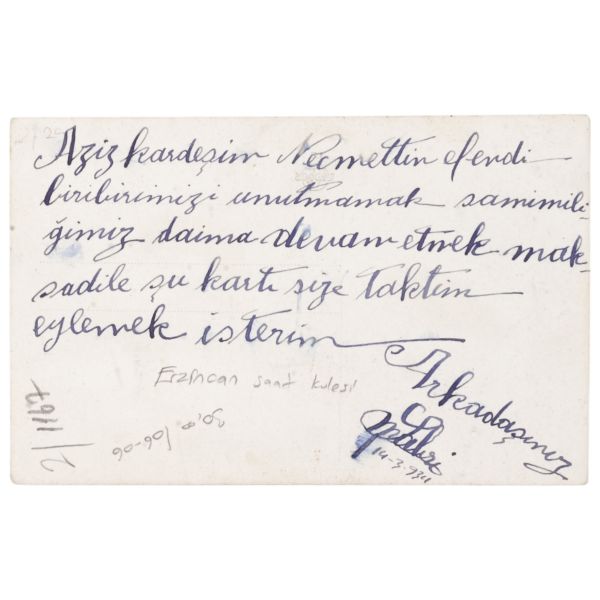 Aziz kardeşim Necmettin efendi
biribirimizi unutmamak samimili-
ğimiz daima devam etmek mak-
sadile şu kartı size taktim
eylemek isterim
Arkadaşınız
14-3-934
Erzincan saat kulesi